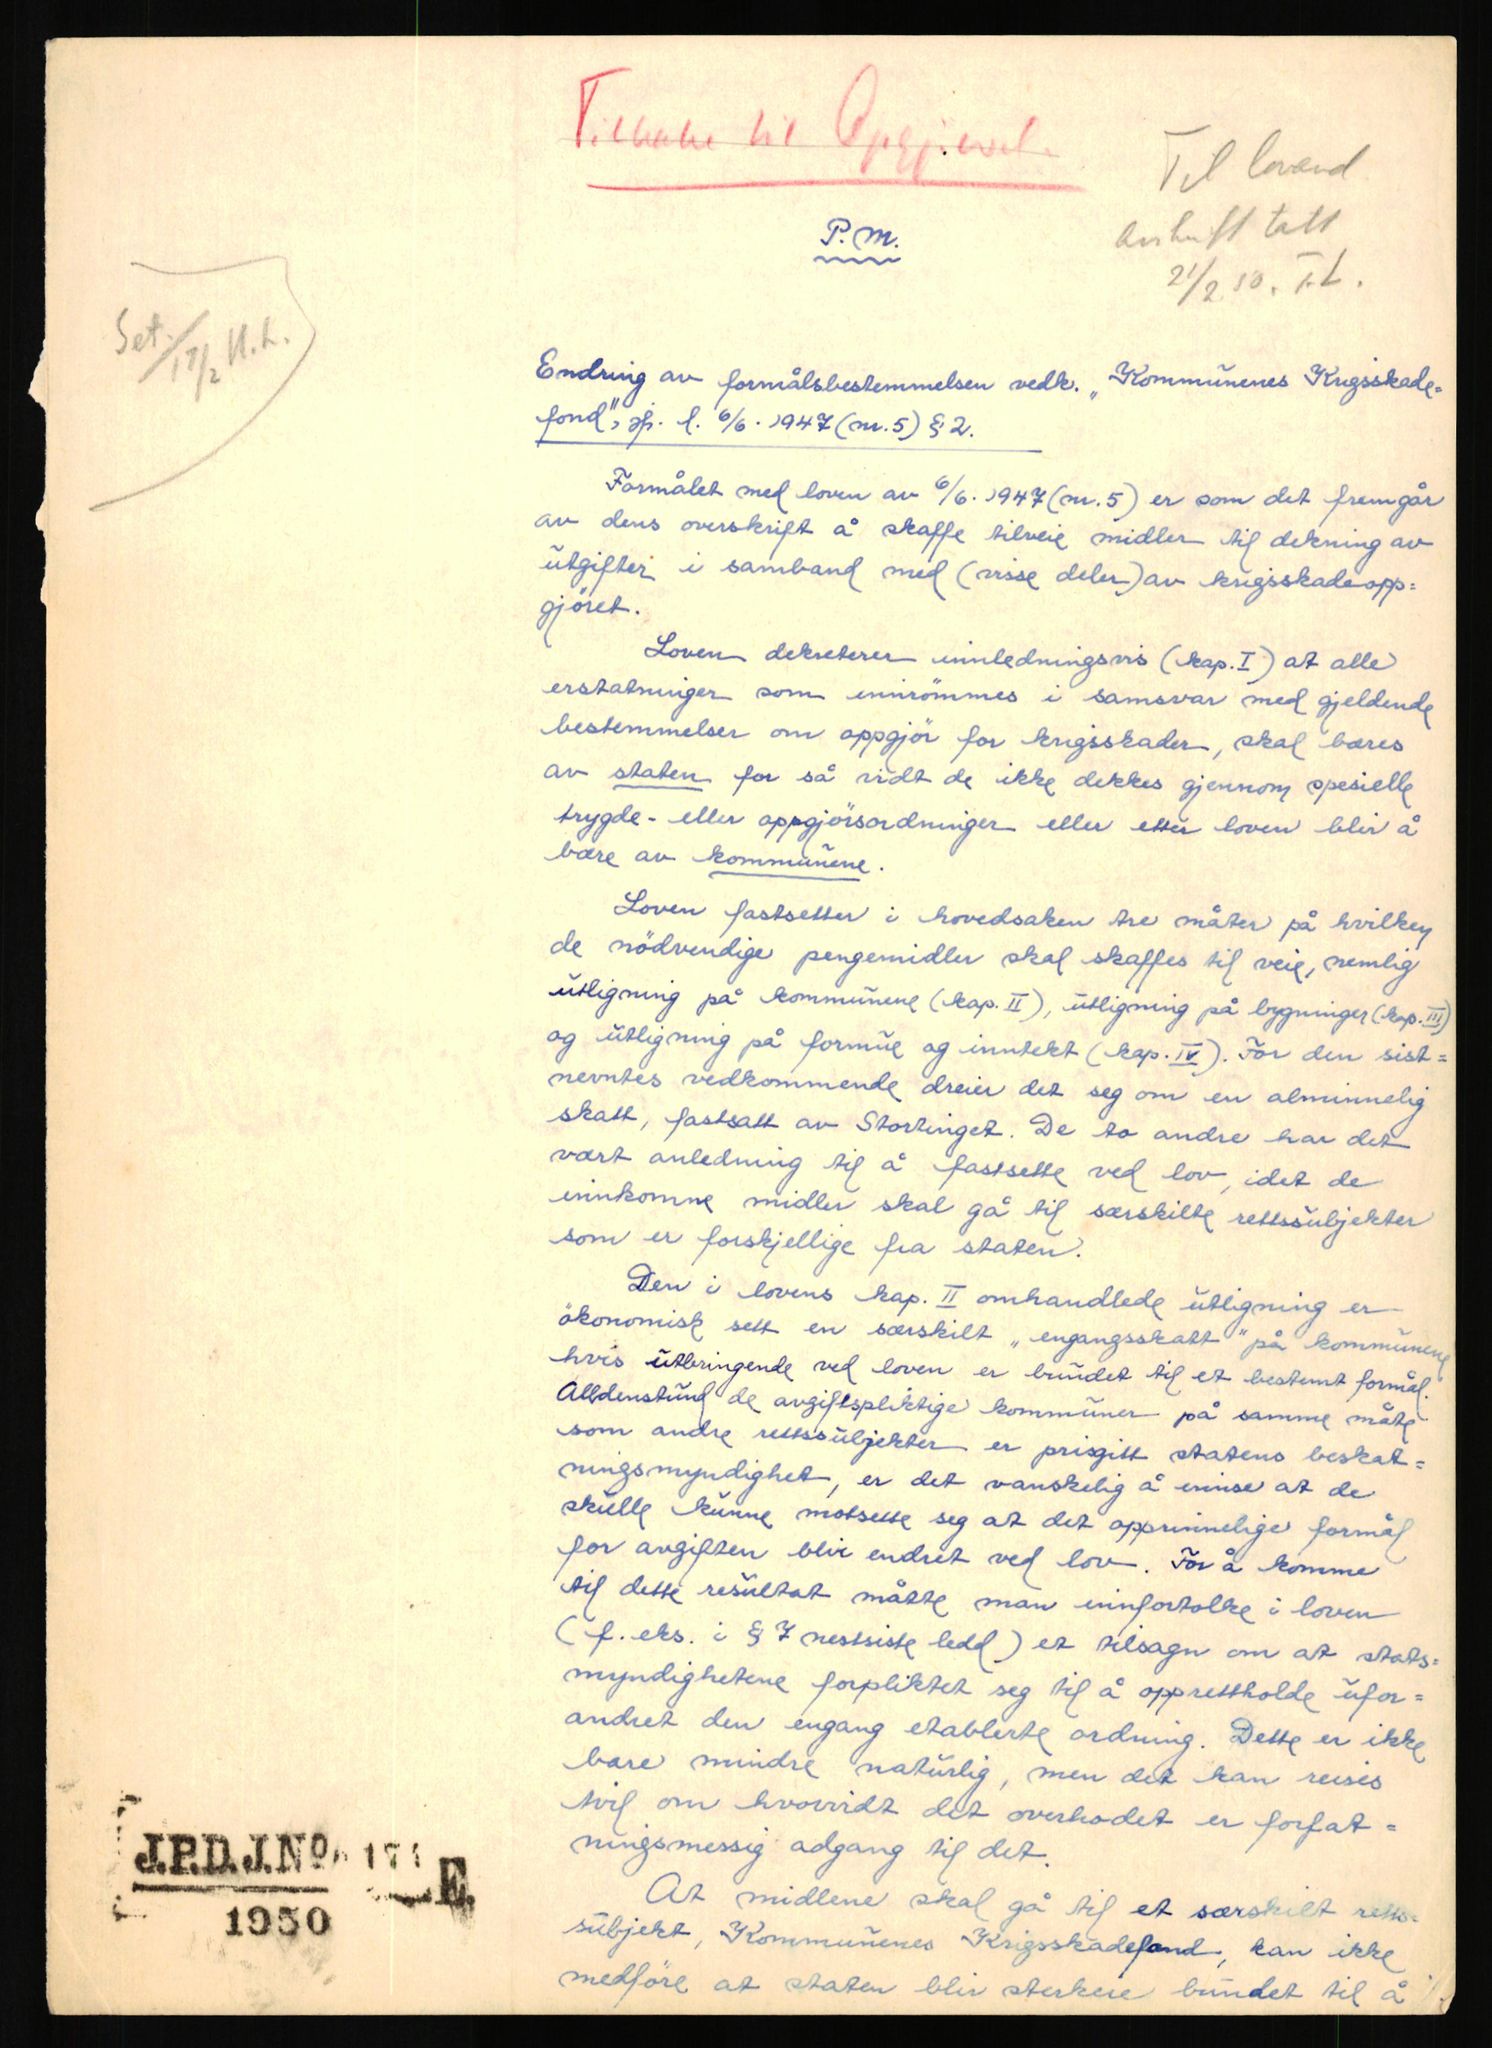 Tilbake til Oppgjørsavd.
Til lovavd
Avskrift tatt
21/2 50. T.L.
P.M.
Set.
17/2 H.L.
Endring av formålsbestemmelsen vedk. „Kommunenes Krigsskade=
fond", jfr. l. 6/6. 1947 (nr. 5) § 2.
Formålet med loven av 6/6. 1947 (nr. 5) er som det fremgår
av dens overskrift å skaffe tilveie midler til dekning av
utgifter i samband med (visse deler) av krigsskadeopp=
gjöret.
Loven dekreterer innledningsvis (kap. I) at alle
erstatninger som innrömmes i samsvar med gjeldende
bestemmelser om oppgjör for krigsskader, skal bæres
av staten for så vidt de ikke dekkes gjennom spesielle
trygde- eller oppgjörsordninger eller etter loven blir å
bære av kommunene.
Loven fastsetter i hovedsaken tre måter på hvilken
de nödvendige pengemidler skal skaffes til veie, nemlig
utligning på kommunene (kap. II), utligning på bygninger (kap. III)
og utligning på formue og inntekt (kap. IV). For den sist=
nevntes vedkommende dreier det seg om en alminnelig
skatt, fastsatt av Stortinget. De to andre har det
vært anledning til å fastsette ved lov, idet de
innkomne midler skal gå til særskilte rettssubjekter
som er forskjellige fra staten.
Den i lovens kap. II omhandlede utligning er
ökonomisk sett en særskilt „engangsskatt" på kommunene
hvis utbringende ved loven er bundet til et bestemt formål.
Alldenstund de avgiftspliktige kommuner på samme måte
som andre rettssubjekter er prisgitt statens beskat=
ningsmyndighet, er det vanskelig å innse at de
skulle kunne motsette seg at det opprinnelige formål
for avgiften blir endret ved lov. For å komme
til dette resultat måtte man innfortolke i loven
(f. eks. i § 7 nestsiste ledd) et tilsagn om at stats=
myndighetene forpliktet seg til å opprettholde ufor=
andret den engang etablerte ordning. Dette er ikke
bare mindre naturlig, men det kan reises
tvil om hvorvidt det overhodet er forfat=
ningsmessig adgang til det.
At midlene skal gå til et særskilt retts=
subjekt, Kommunenes Krigsskadefond, kan ikke
medföre at staten blir sterkere bundet til å
J.P.D.J.No. E.
1950